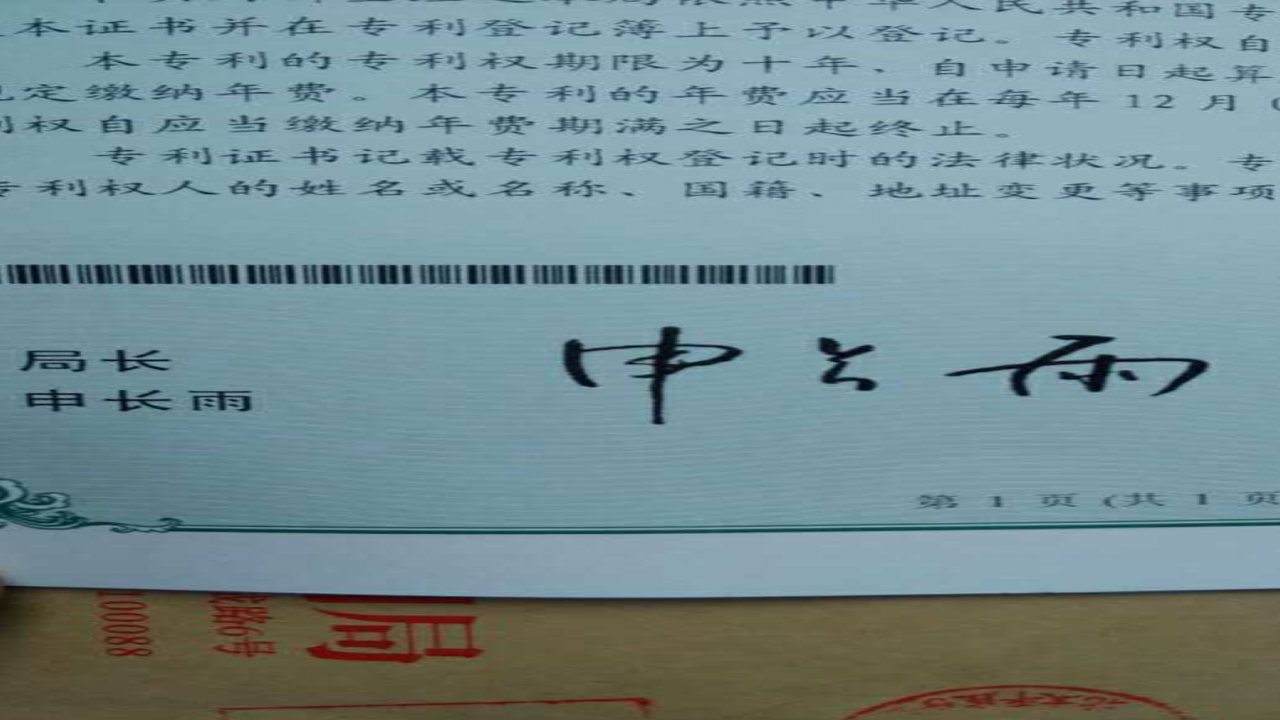 本证书并在专利登记簿上予以登记。专利权自
本专利的专利权期限为十年,自申请日起算
定缴纳年费。本专利的年费应当在每年12月
权自应当缴纳年费期满之日起终止。
专利证书记载专利权登记时的法律状况。专
专利权人的姓名或名称、国籍、地址变更等事项
局长
申长雨
申长雨
第 1 页 (共 1 页
局
路6号
100088